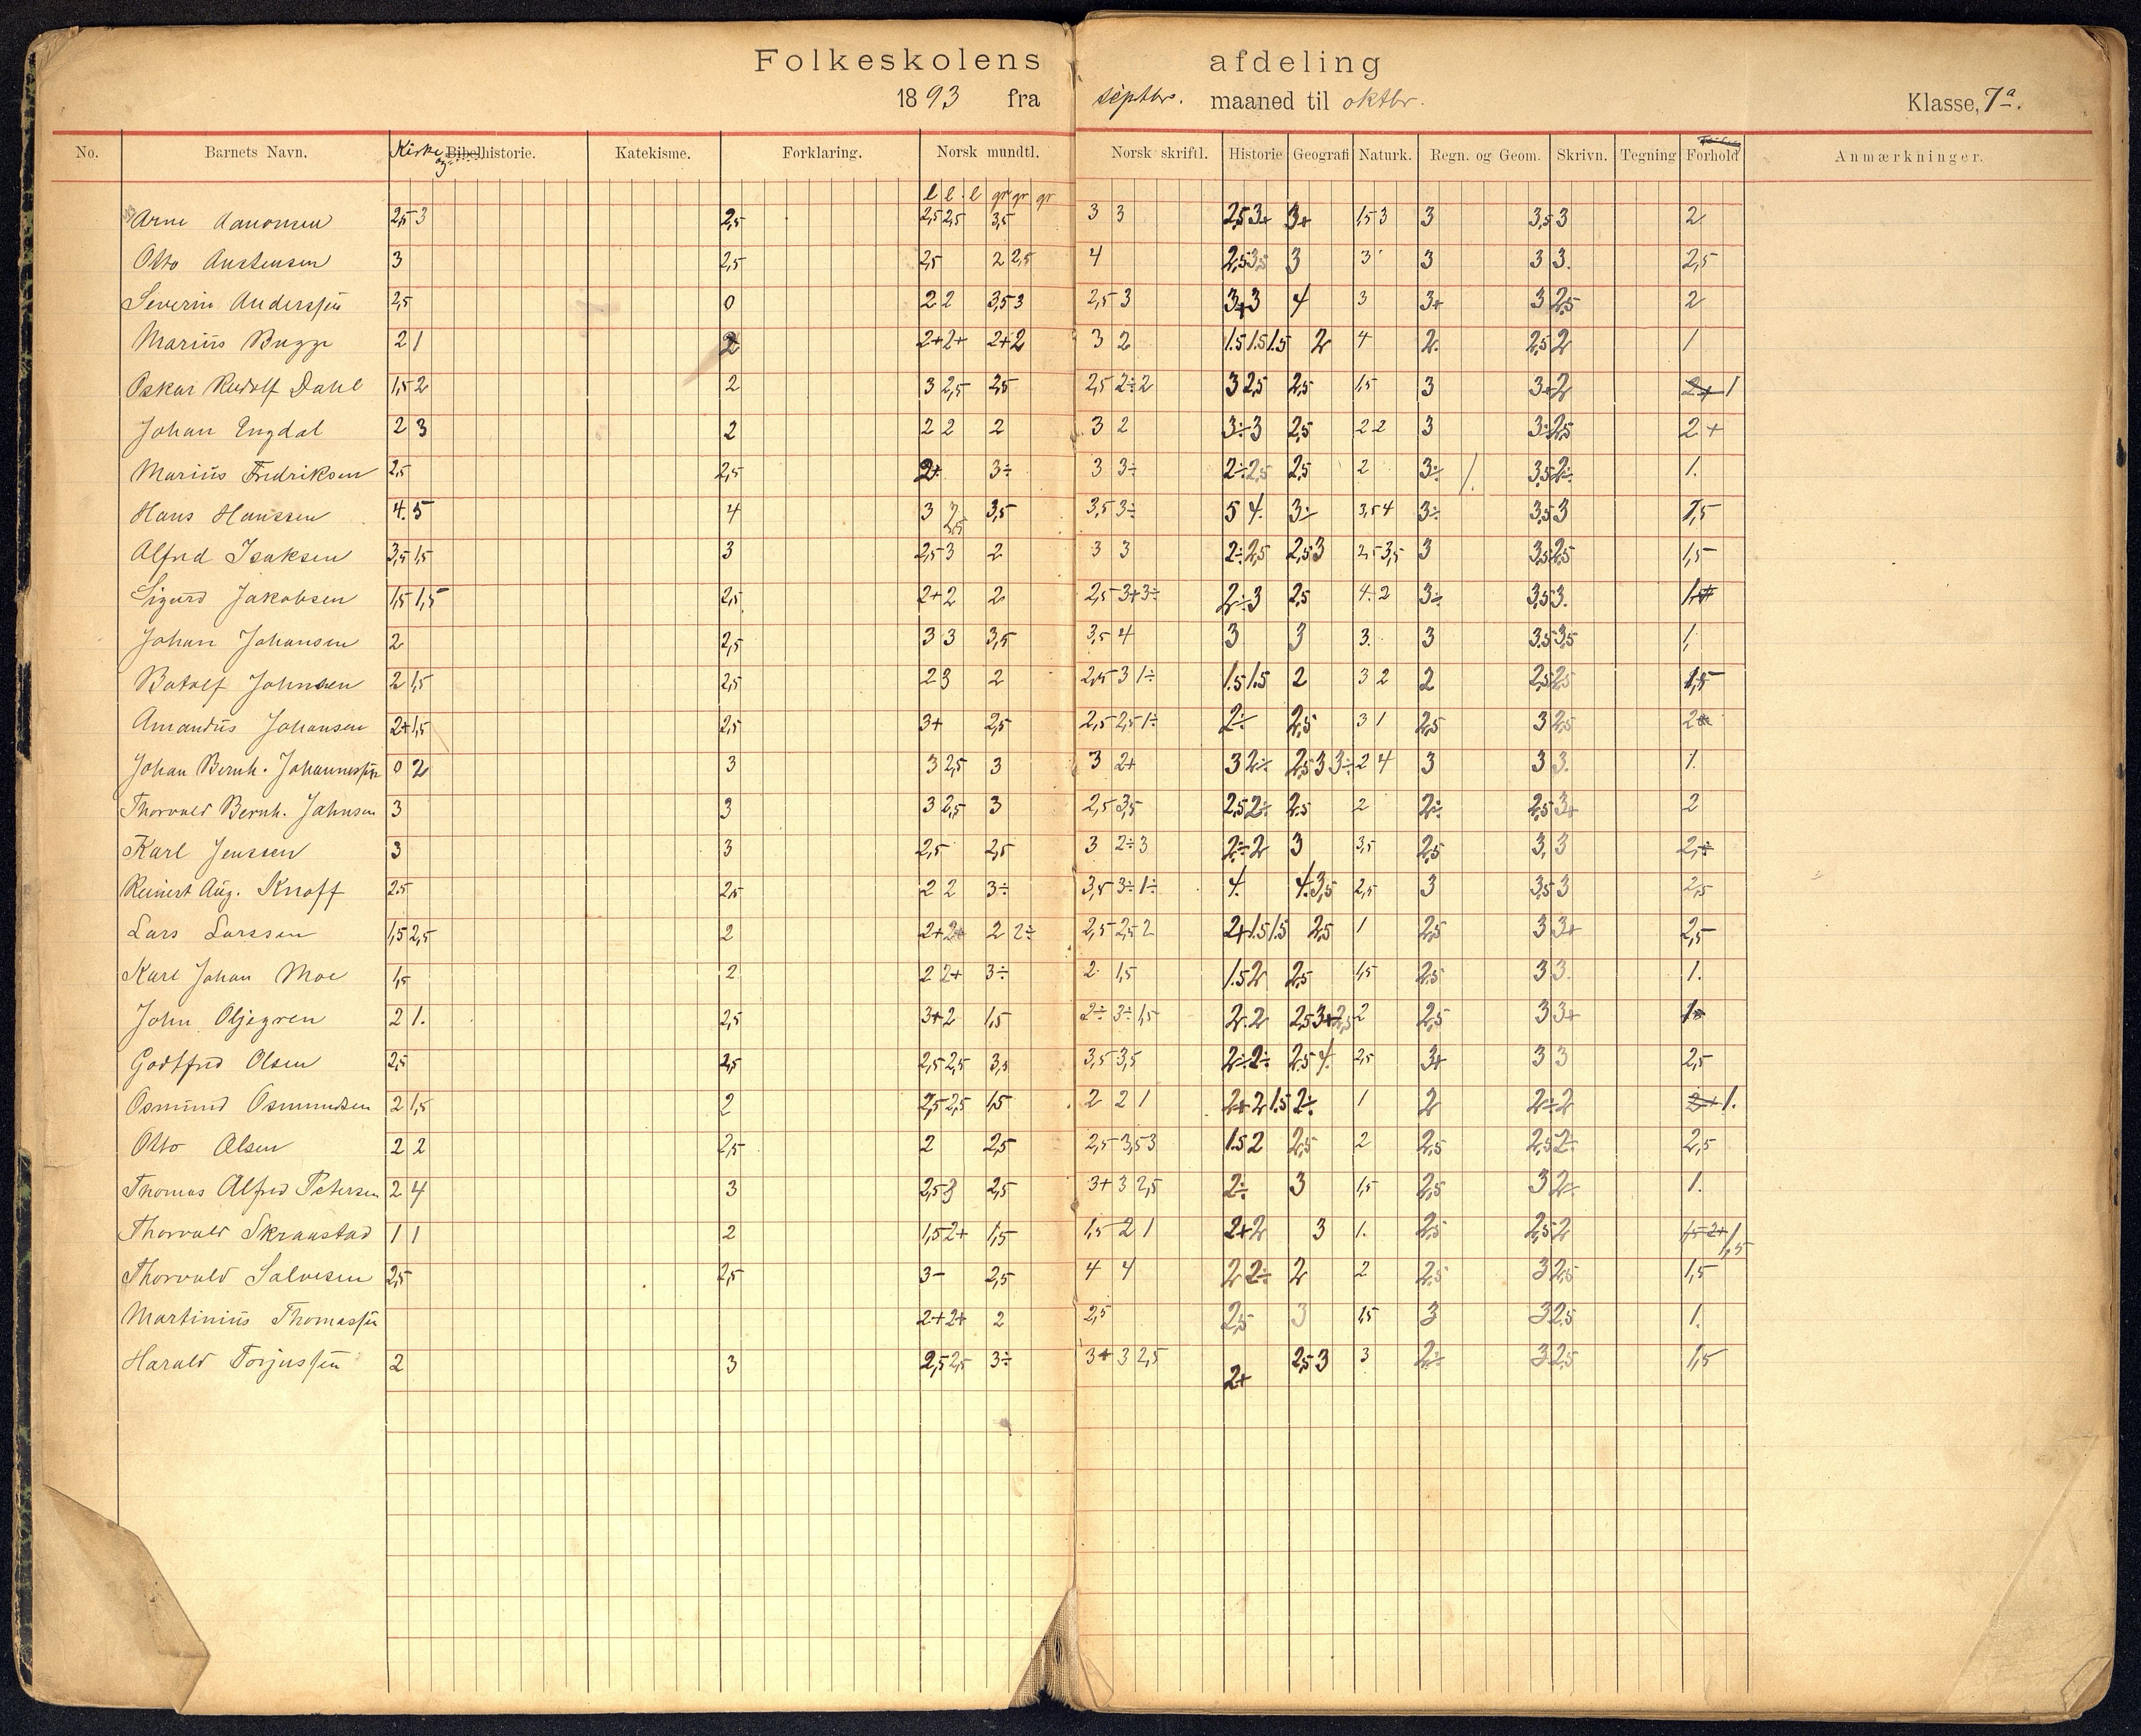 Folkeskolens afdeling
1893 fra septbr. maaned til oktbr. Klasse, 7a.
No. Barnets Navn. Kirke og Bibelhistorie. Katekisme. Forklaring. Norsk mundtl. Norsk skriftl. Historie Geografi Naturk. Regn. og Geom. Skrivn. Tegning Forhold Anmærkninger.
l l l gr gr gr
Arne Aanonsen 2,5 3 2,5 2,5 2,5 3,5 3 3 2,5 3+ 3+ 1,5 3 3 3,5 3 2
Otto Austensen 3 2,5 2,5 2 2,5 4 2,5 3,5 3 3 3 3 3. 2,5
Severin Anderssen 2,5 0 2 2 3,5 3 2,5 3 3+ 3 4 3 3+ 3 2,5 2
Marius Bugge 2 1 2 2+ 2+ 2+ 2 3 2 1.5 1.5 1.5 2 4 2. 2,5 2 1
Oskar Rudolf Dahl 1,5 2 2 3 2,5 2,5 2,5 2÷ 2 3 2,5 2,5 1,5 3 3+ 2 2+ 1
Johan Engdal 2 3 2 2 2 2 3 2 3÷ 3 2,5 2 2 3 3÷ 2,5 2+
Marius Fredriksen 2,5 2,5 2+ 3÷ 3 3÷ 2÷ 2,5 2,5 2 3÷ 1. 3,5 2÷ 1.
Hans Hanssen 4. 5 4 3 2,5 3,5 3,5 3÷ 5 4. 3÷ 3,5 4 3÷ 3,5 3 1,5
Alfred Isaksen 3,5 1,5 3 2,5 3 2 3 3 2÷ 2,5 2,5 3 2,5 3,5 3 3,5 2,5 1,5
Sigurd Jakobsen 1,5 1,5 2,5 2+ 2 2 2,5 3+ 3÷ 2÷ 3 2,5 4. 2 3÷ 3,5 3.
Johan Johansen 2 2,5 3 3 3,5 3,5 4 3 3 3. 3 3.5 3,5 1,
Botolf Johnsen 2 1,5 2,5 2 3 2 2,5 3 1÷ 1.5 1.5 2 3 2 2 2,5 2,5 1,5
Amandus Johansen 2+ 1,5 2,5 3+ 2,5 2,5 2,5 1÷ 2÷ 2,5 3 1 2,5 3 2,5
Johan Bernh. Johannessen 0 2 3 3 2,5 3 3 2+ 3 2÷ 2,5 3 3÷ 2 4 3 3 3. 1.
Thorvald Bernh. Johnsen 3 3 3 2,5 3 2,5 3,5 2,5 2÷ 2.5 2 2÷ 2,5 3+ 2
Karl Jenssen 3 3 2,5 2,5 3 2÷ 3 2÷ 2 3 3,5 2,5 3, 3
Reinert Aug. Knoff 2,5 2,5 2 2 3÷ 3,5 3÷ 1÷ 4. 4. 3,5 2,5 3 3,5 3 2,5
Lars Larssen 1,5 2,5 2 2+ 2+ 2 2÷ 2,5 2,5 2 2+ 1.5 1.5 2,5 1 2,5 3 3+ 2,5
Karl Johan Moe 1,5 2 2 2+ 3÷ 2 1,5 1.5 2 2,5 1,5 2,5 3 3. 1.
John Oljegren 2 1. 2,5 3+ 2 1,5 2÷ 3÷ 1,5 2. 2 2,5 3+ 2,5 2 2,5 3 3+
Godtfred Olsen 2,5 2,5 2,5 2,5 3,5 3,5 3,5 2÷ 2÷ 2,5 4. 2,5 3+ 3 3 2,5
Osmund Osmundsen 2 1,5 2 2,5 2,5 1,5 2 2 1 2+ 2 1.5 2÷ 1 2 2÷ 2 2+ 1.
Otto Olsen 2 2 2,5 2 2,5 2,5 3,5 3 1.5 2 2,5 2 2,5 2,5 2÷ 2,5
Thomas Alfred Petersen 2 4 3 2,5 3 2,5 3+ 3 2,5 2÷ 3 1,5 2,5 3 2÷ 1.
Thorvald Skraastad 1 1 2 1,5 2+ 1,5 1,5 2 1 2+ 2 3 1. 2,5 2,5 2 1,5 2+ 1 1,5
Thorvald Salvesen 2,5 2,5 3- 2,5 4 4 2 2÷ 2 2 2,5 3 2,5 1,5
Martinius Thomassen 2+ 2+ 2 2,5 2,5 3 1,5 3 3 2,5 1.
Harald Torjussen 2 3 2,5 2,5 3÷ 3+ 3 2,5 2+ 2,5 3 3 2÷ 3 2,5 1,5